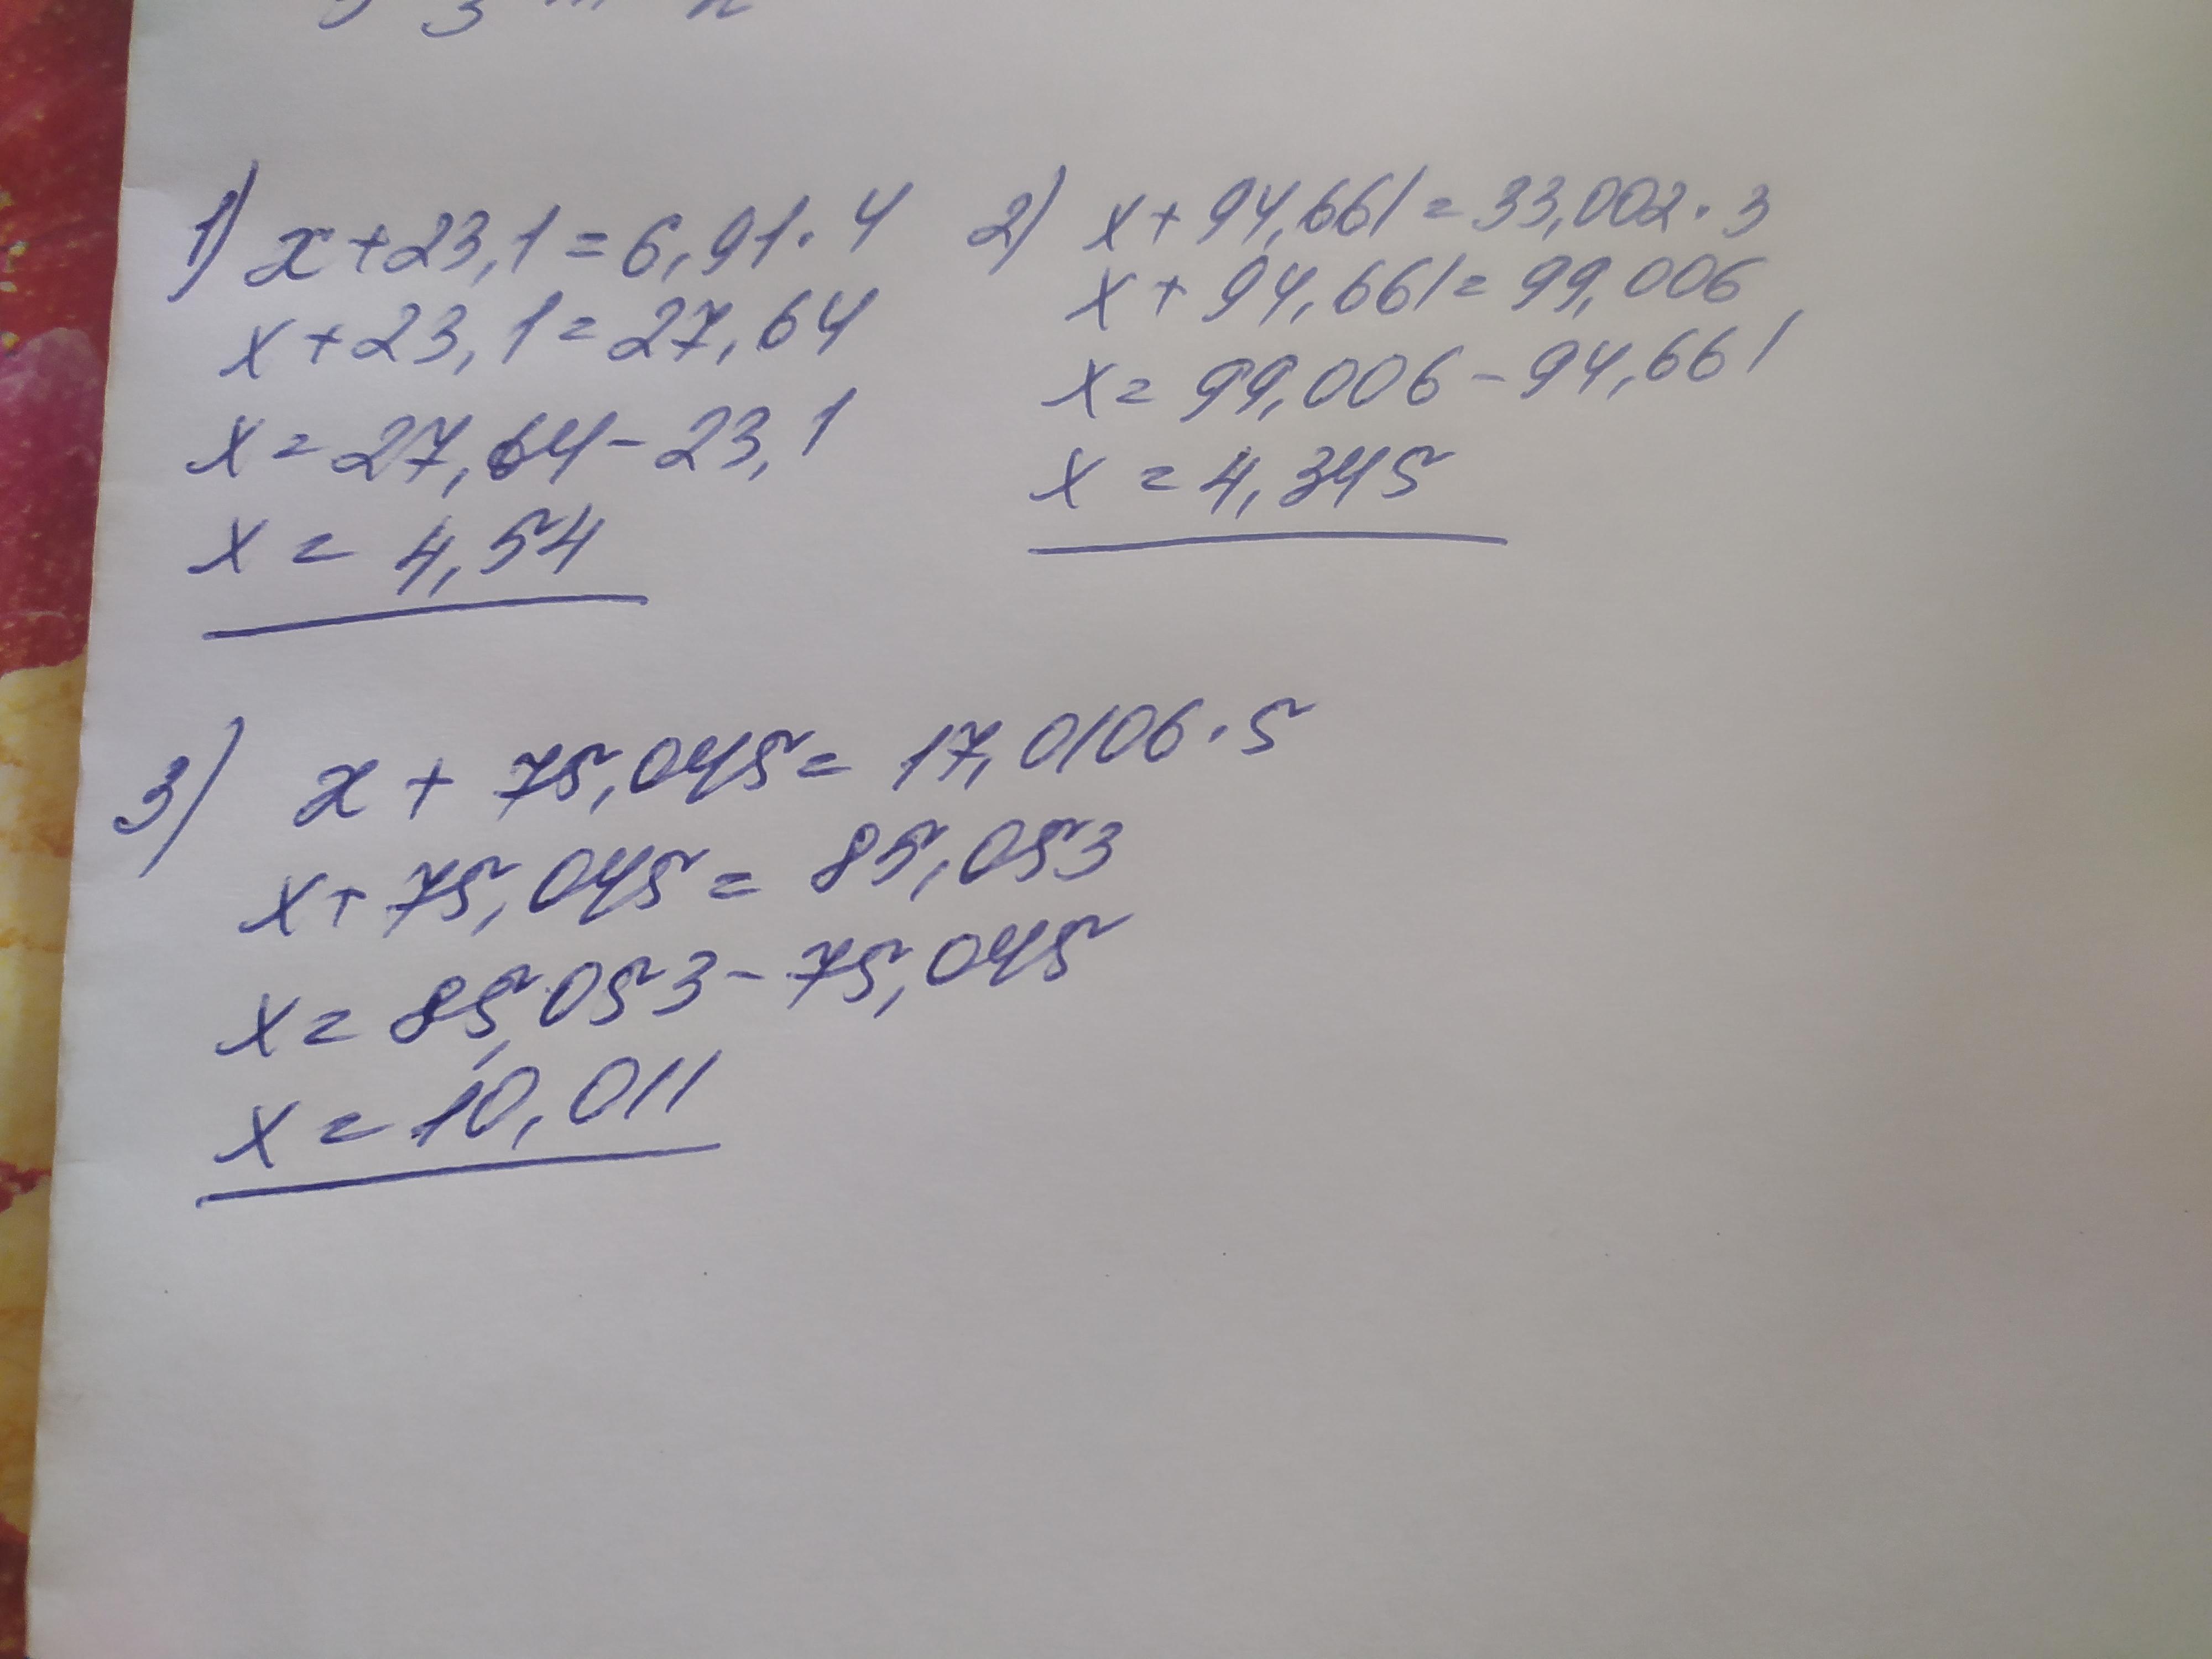 1) x+23,1=6,91·4
x+23,1=27,64
x=27,64-23,1
x=4,54
2) x+94,661=33,002·3
x+94,661=99,006
x=99,006-94,661
x=4,345
3) x+75,045=17,0106·5
x+75,045=85,053
x=85,053-75,045
x=10,011